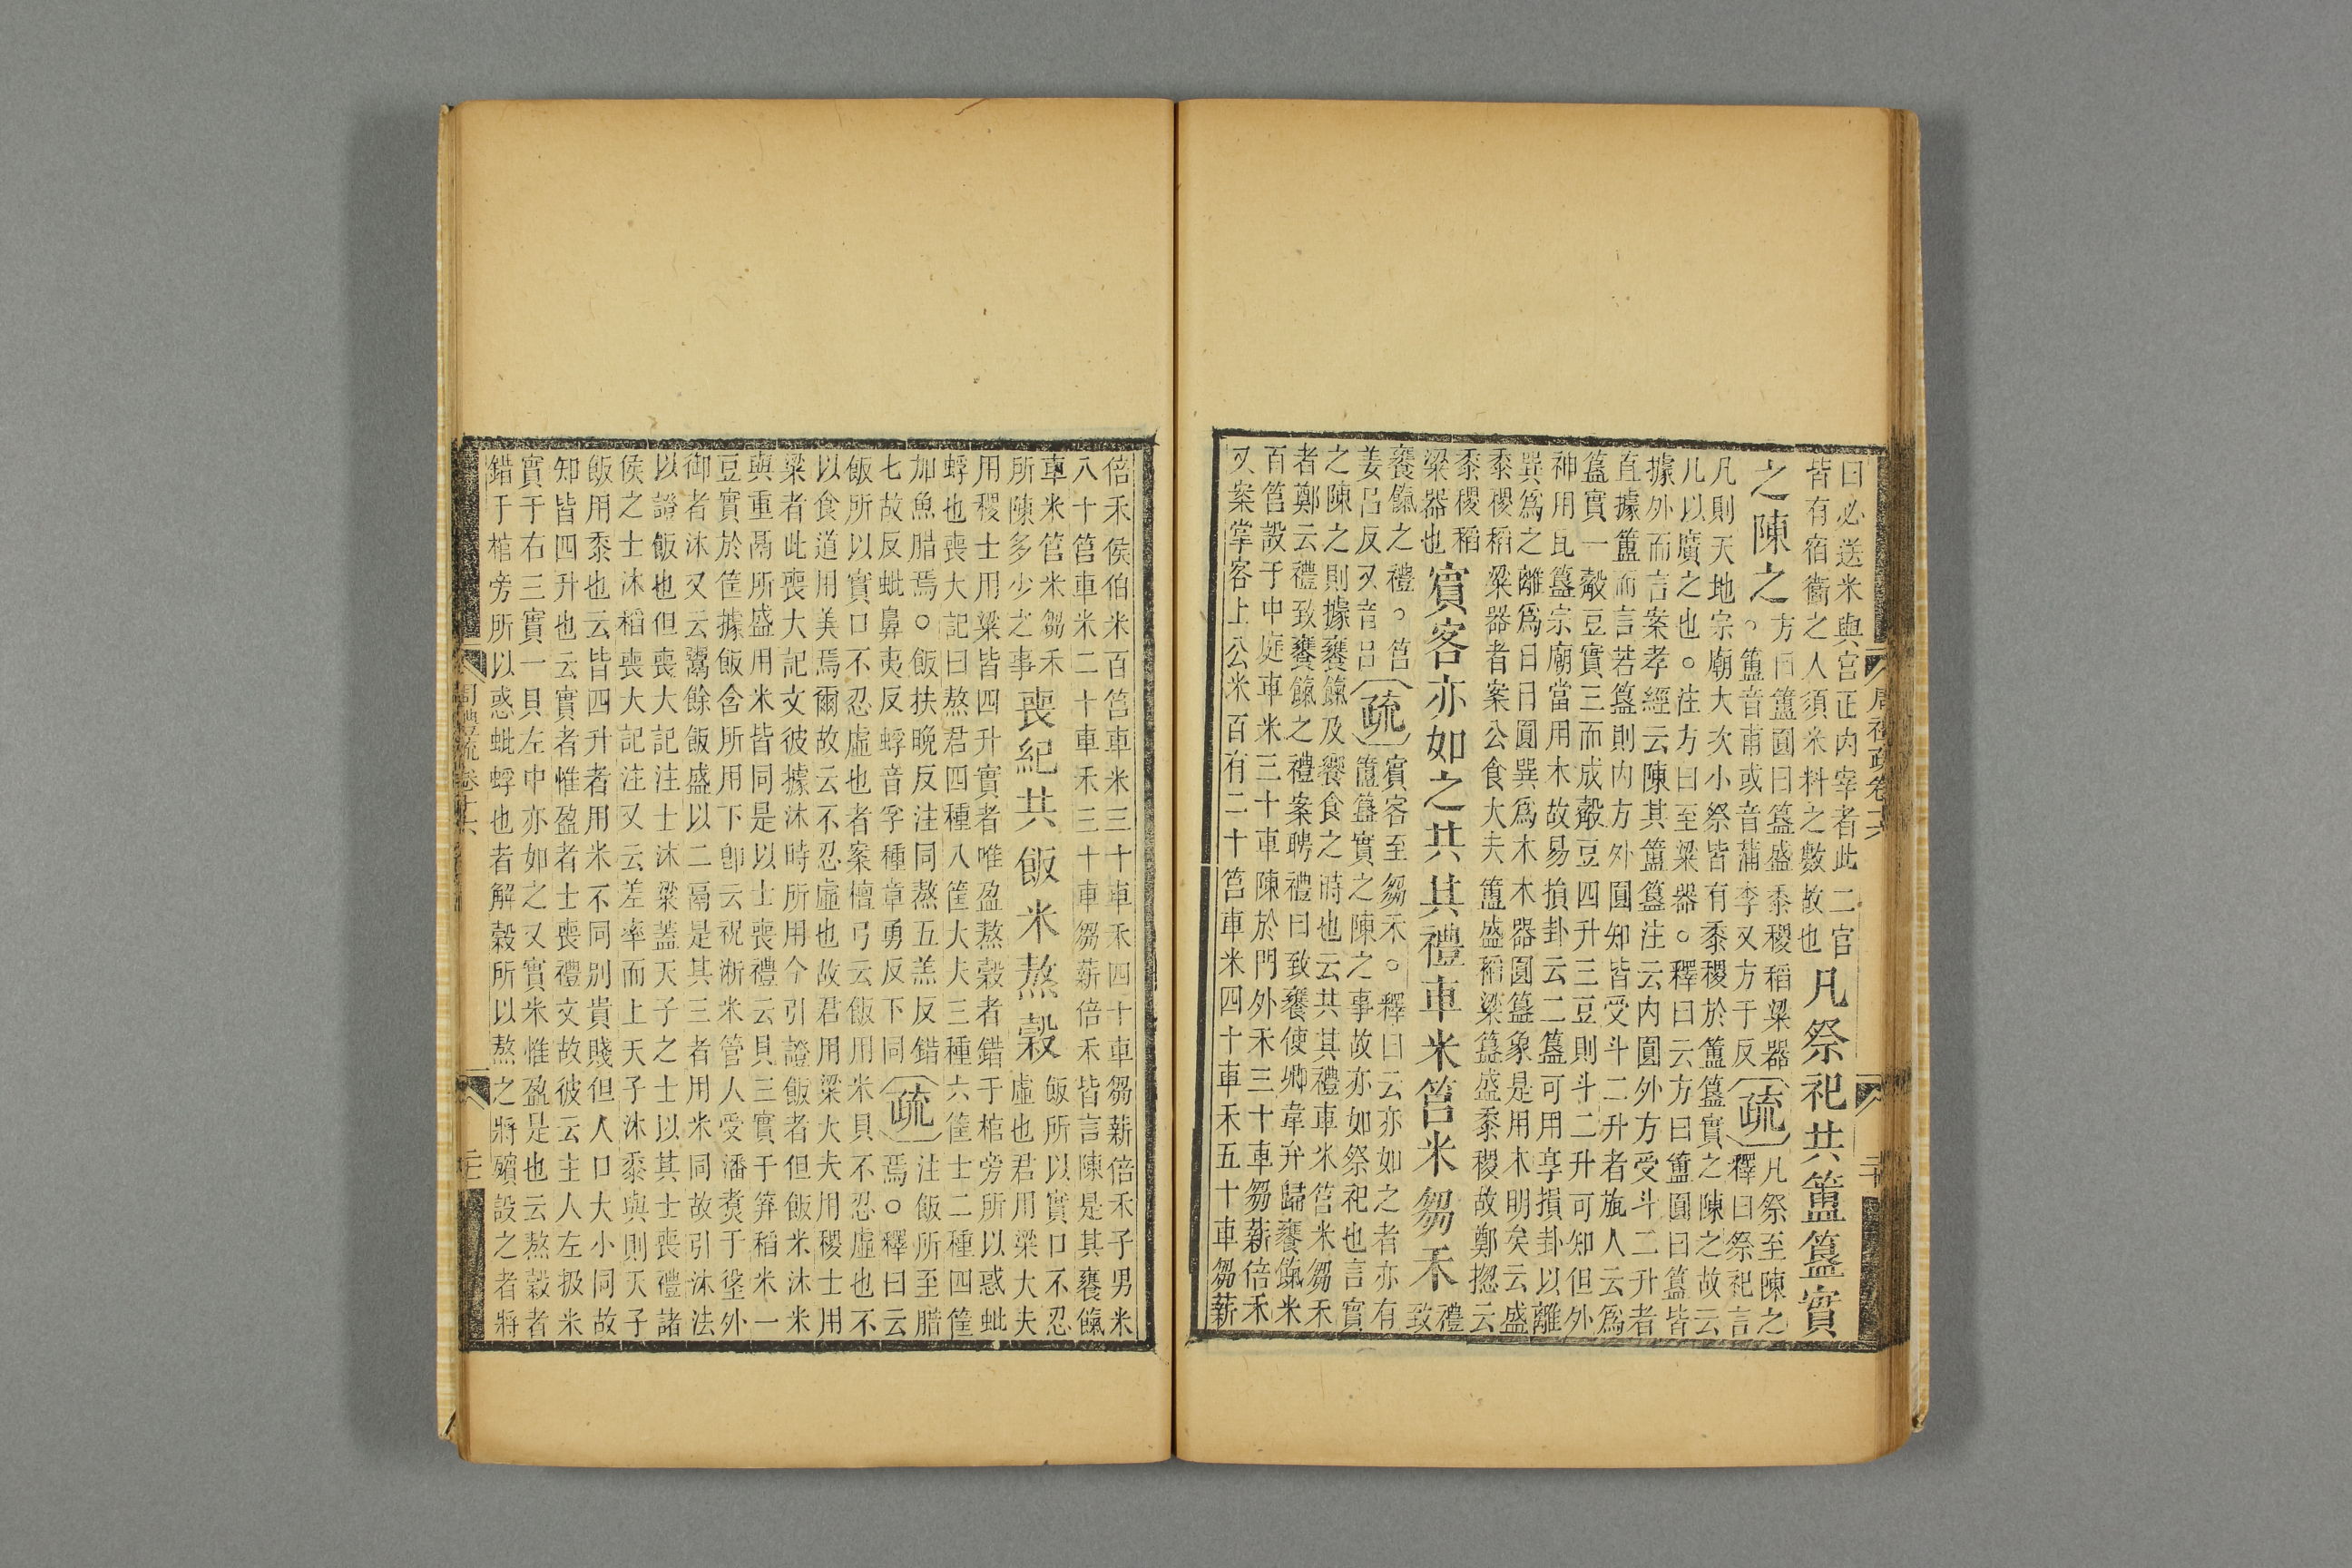 周禮疏卷十六
二十
曰必送米與宮正内宰者此二官
皆有宿衞之人須米料之數故也
凡祭祀共簠簋實
之陳之
方曰簠圓曰簋盛黍稷稻粱器
○簠音甫或音蒲李又方于反
疏
凡祭至陳之
釋曰祭祀言
凡則天地宗廟大次小祭皆有黍稷於簠簋實之陳之故云
凡以廣之也○注方曰至粱器○釋曰云方曰簠圓曰簋皆
據外而言案孝經云陳其簠簋注云内圓外方受斗二升者
直據簠而言若簋則内方外圓知皆受斗二升者旊人云爲
簋實一觳豆實三而成觳豆四升三豆則斗二升可知但外
神用瓦簋宗廟當用木故易損卦云二簋可用享損卦以離
巽爲之離爲日日圓巽爲木木器圓簋象是用木明矣云盛
黍稷稻粱器者案公食大夫簠盛稻粱簋盛黍稷故鄭揔云
黍稷稻
粱器也
賓客亦如之共其禮車米筥米芻禾
禮
致
饔餼之禮○筥
姜呂反又音呂
疏
賓客至芻禾○釋曰云亦如之者亦有
簠簋實之陳之事故亦如祭祀也言實
之陳之則據饔餼及饗食之時也云共其禮車米筥米芻禾
者鄭云禮致饔餼之禮案聘禮曰致饔使卿韋弁歸饔餼米
百筥設于中庭車米三十車陳於門外禾三十車芻薪倍禾
又案掌客上公米百有二十筥車米四十車禾五十車芻薪
倍禾侯伯米百筥車米三十車禾四十車芻薪倍禾子男米
八十筥車米二十車禾三十車芻薪倍禾皆言陳是其饔餼
車米筥米芻禾
所陳多少之事
喪紀共飯米熬穀
飯所以實口不忍
虛也君用粱大夫
用稷士用粱皆四升實者唯盈熬穀者錯于棺旁所以惑蚍
蜉也喪大記曰熬君四種八筐大夫三種六筐士二種四筐
加魚腊焉○飯扶晚反注同熬五羔反錯
七故反蚍鼻夷反蜉音孚種章勇反下同
疏
注飯所至腊
焉○釋曰云
飯所以實口不忍虛也者案檀弓云飯用米貝不忍虛也不
以食道用美焉爾故云不忍虛也故君用粱大夫用稷士用
粱者此喪大記文彼據沐時所用今引證飯者但飯米沐米
與重鬲所盛用米皆同是以士喪禮云貝三實于笲稻米一
豆實於筐據飯含所用下卽云祝淅米管人受潘煑于垼外
御者沐又云鬻餘飯盛以二鬲是其三者用米同故引沐法
以證飯也但喪大記注士沐粱蓋天子之士以其士喪禮諸
侯之士沐稻喪大記注又云差率而上天子沐黍與則天子
飯用黍也云皆四升者用米不同别貴賤但人口大小同故
知皆四升也云實者惟盈者士喪禮文故彼云主人左扱米
實于右三實一貝左中亦如之又實米惟盈是也云熬穀者
錯于棺旁所以惑蚍蜉也者解穀所以熬之將殯設之者將
周禮疏卷十六